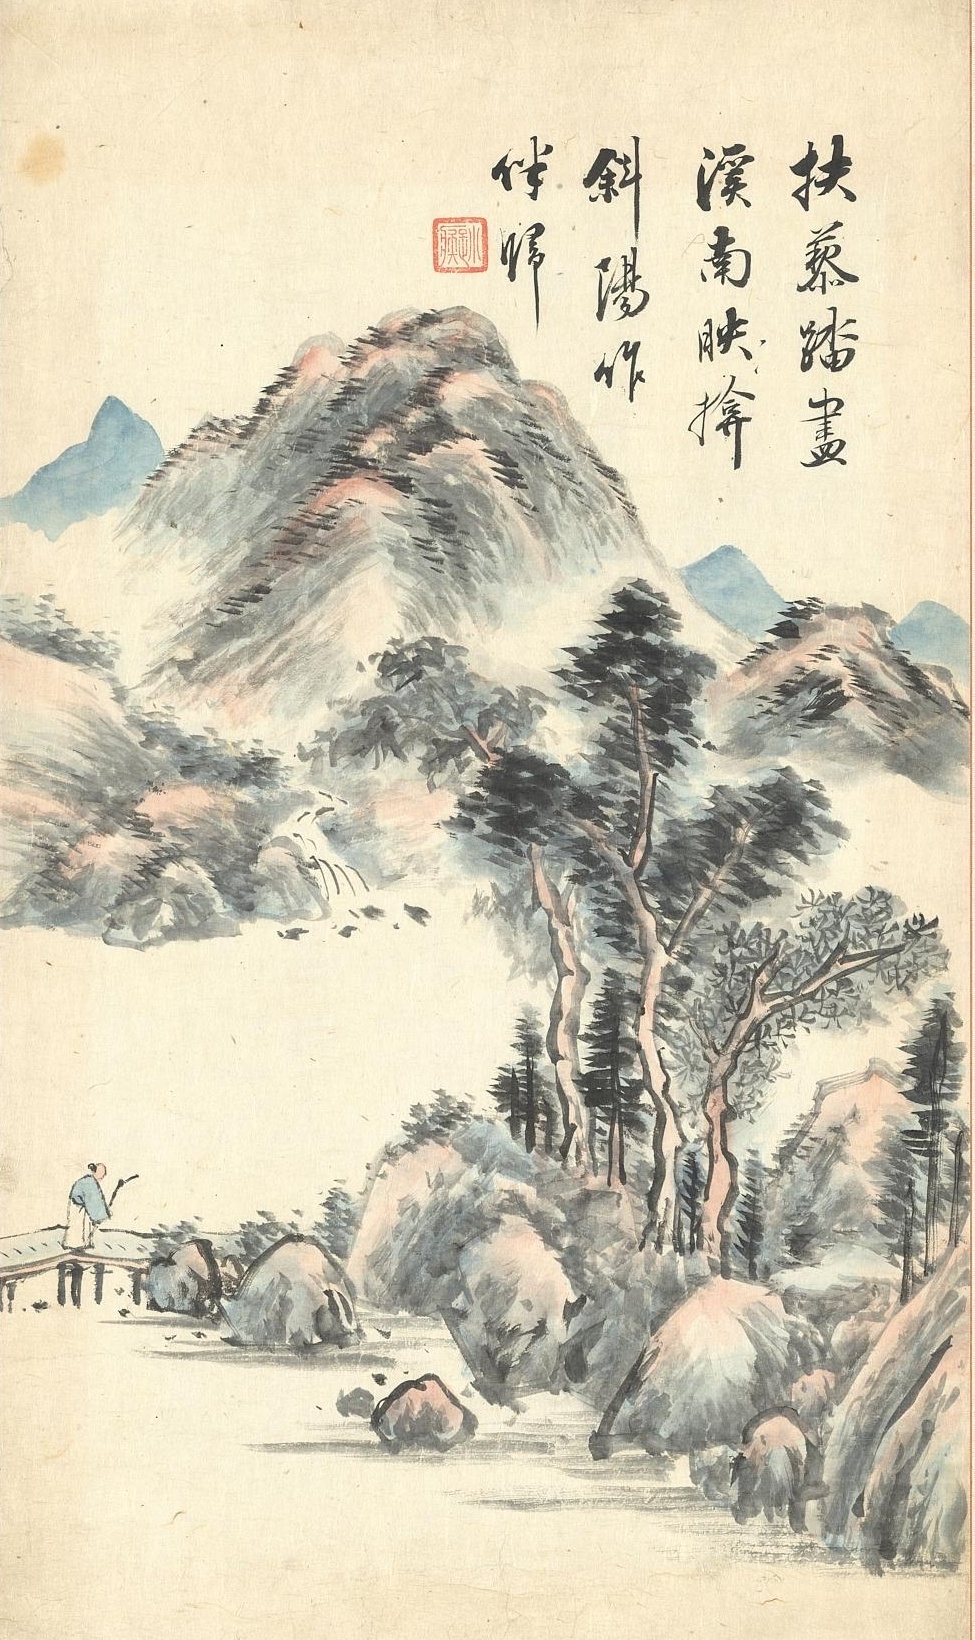 扶藜踏盡
溪南映揜
斜陽作
伴歸